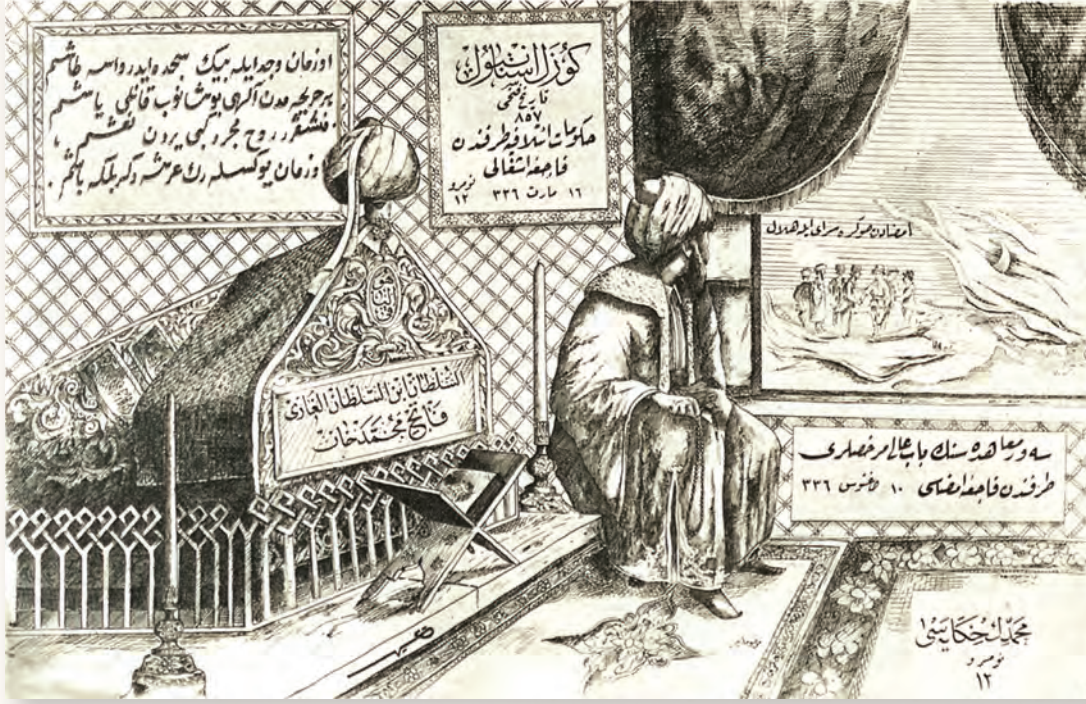 او زمان وجد ایله بیك سجده ایدر وارسه طاشم
هر جریحه مدن الهی بوشانوب قانلی یاشم
فشقرر روح مجرد كبی یردن نعشم
او زمان یوكسله رك عرشه دكر بلكه باشم .
كوزل استانبول
تاریخ فتحی
٨٥٧
حكومات ائتلافیه طرفندن
فاجعه اشغالی
١٦ مارت ٣٣٦ نومرو ١٢
امضادن صوكره سرای هلال
السلطان ابن السلطان الغازی
فاتح محمد خان
سه ور معاهده سنك باب عالی مرخصلری
طرفندن فاجعه امضاسی ١٠ اغستوس ٣٣٦
محمدك حكایه سی
نومرو
١٢